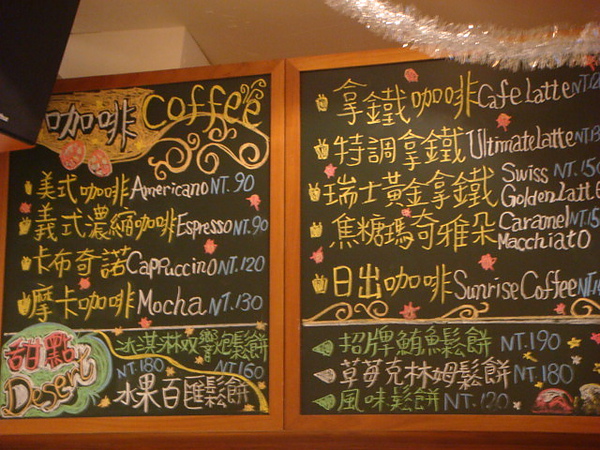 咖啡 coffee
美式咖啡 Americano NT.90
義式濃縮咖啡 Espresso NT.90
卡布奇諾 Cappuccino NT.120
摩卡咖啡 Mocha NT.130
甜點
Desert
冰淇淋双響炮鬆餅
NT.180 NT.160
水果百匯鬆餅
拿鐵咖啡 Cafe Latte
特調拿鐵 Ultimate Latte
瑞士黃金拿鐵 Swiss Golden Latte NT.150
焦糖瑪奇雅朵 Caramel Macchiato
日出咖啡 Sunrise Coffee
招牌鮪魚鬆餅 NT.190
草莓克林姆鬆餅 NT.180
風味鬆餅 NT.120